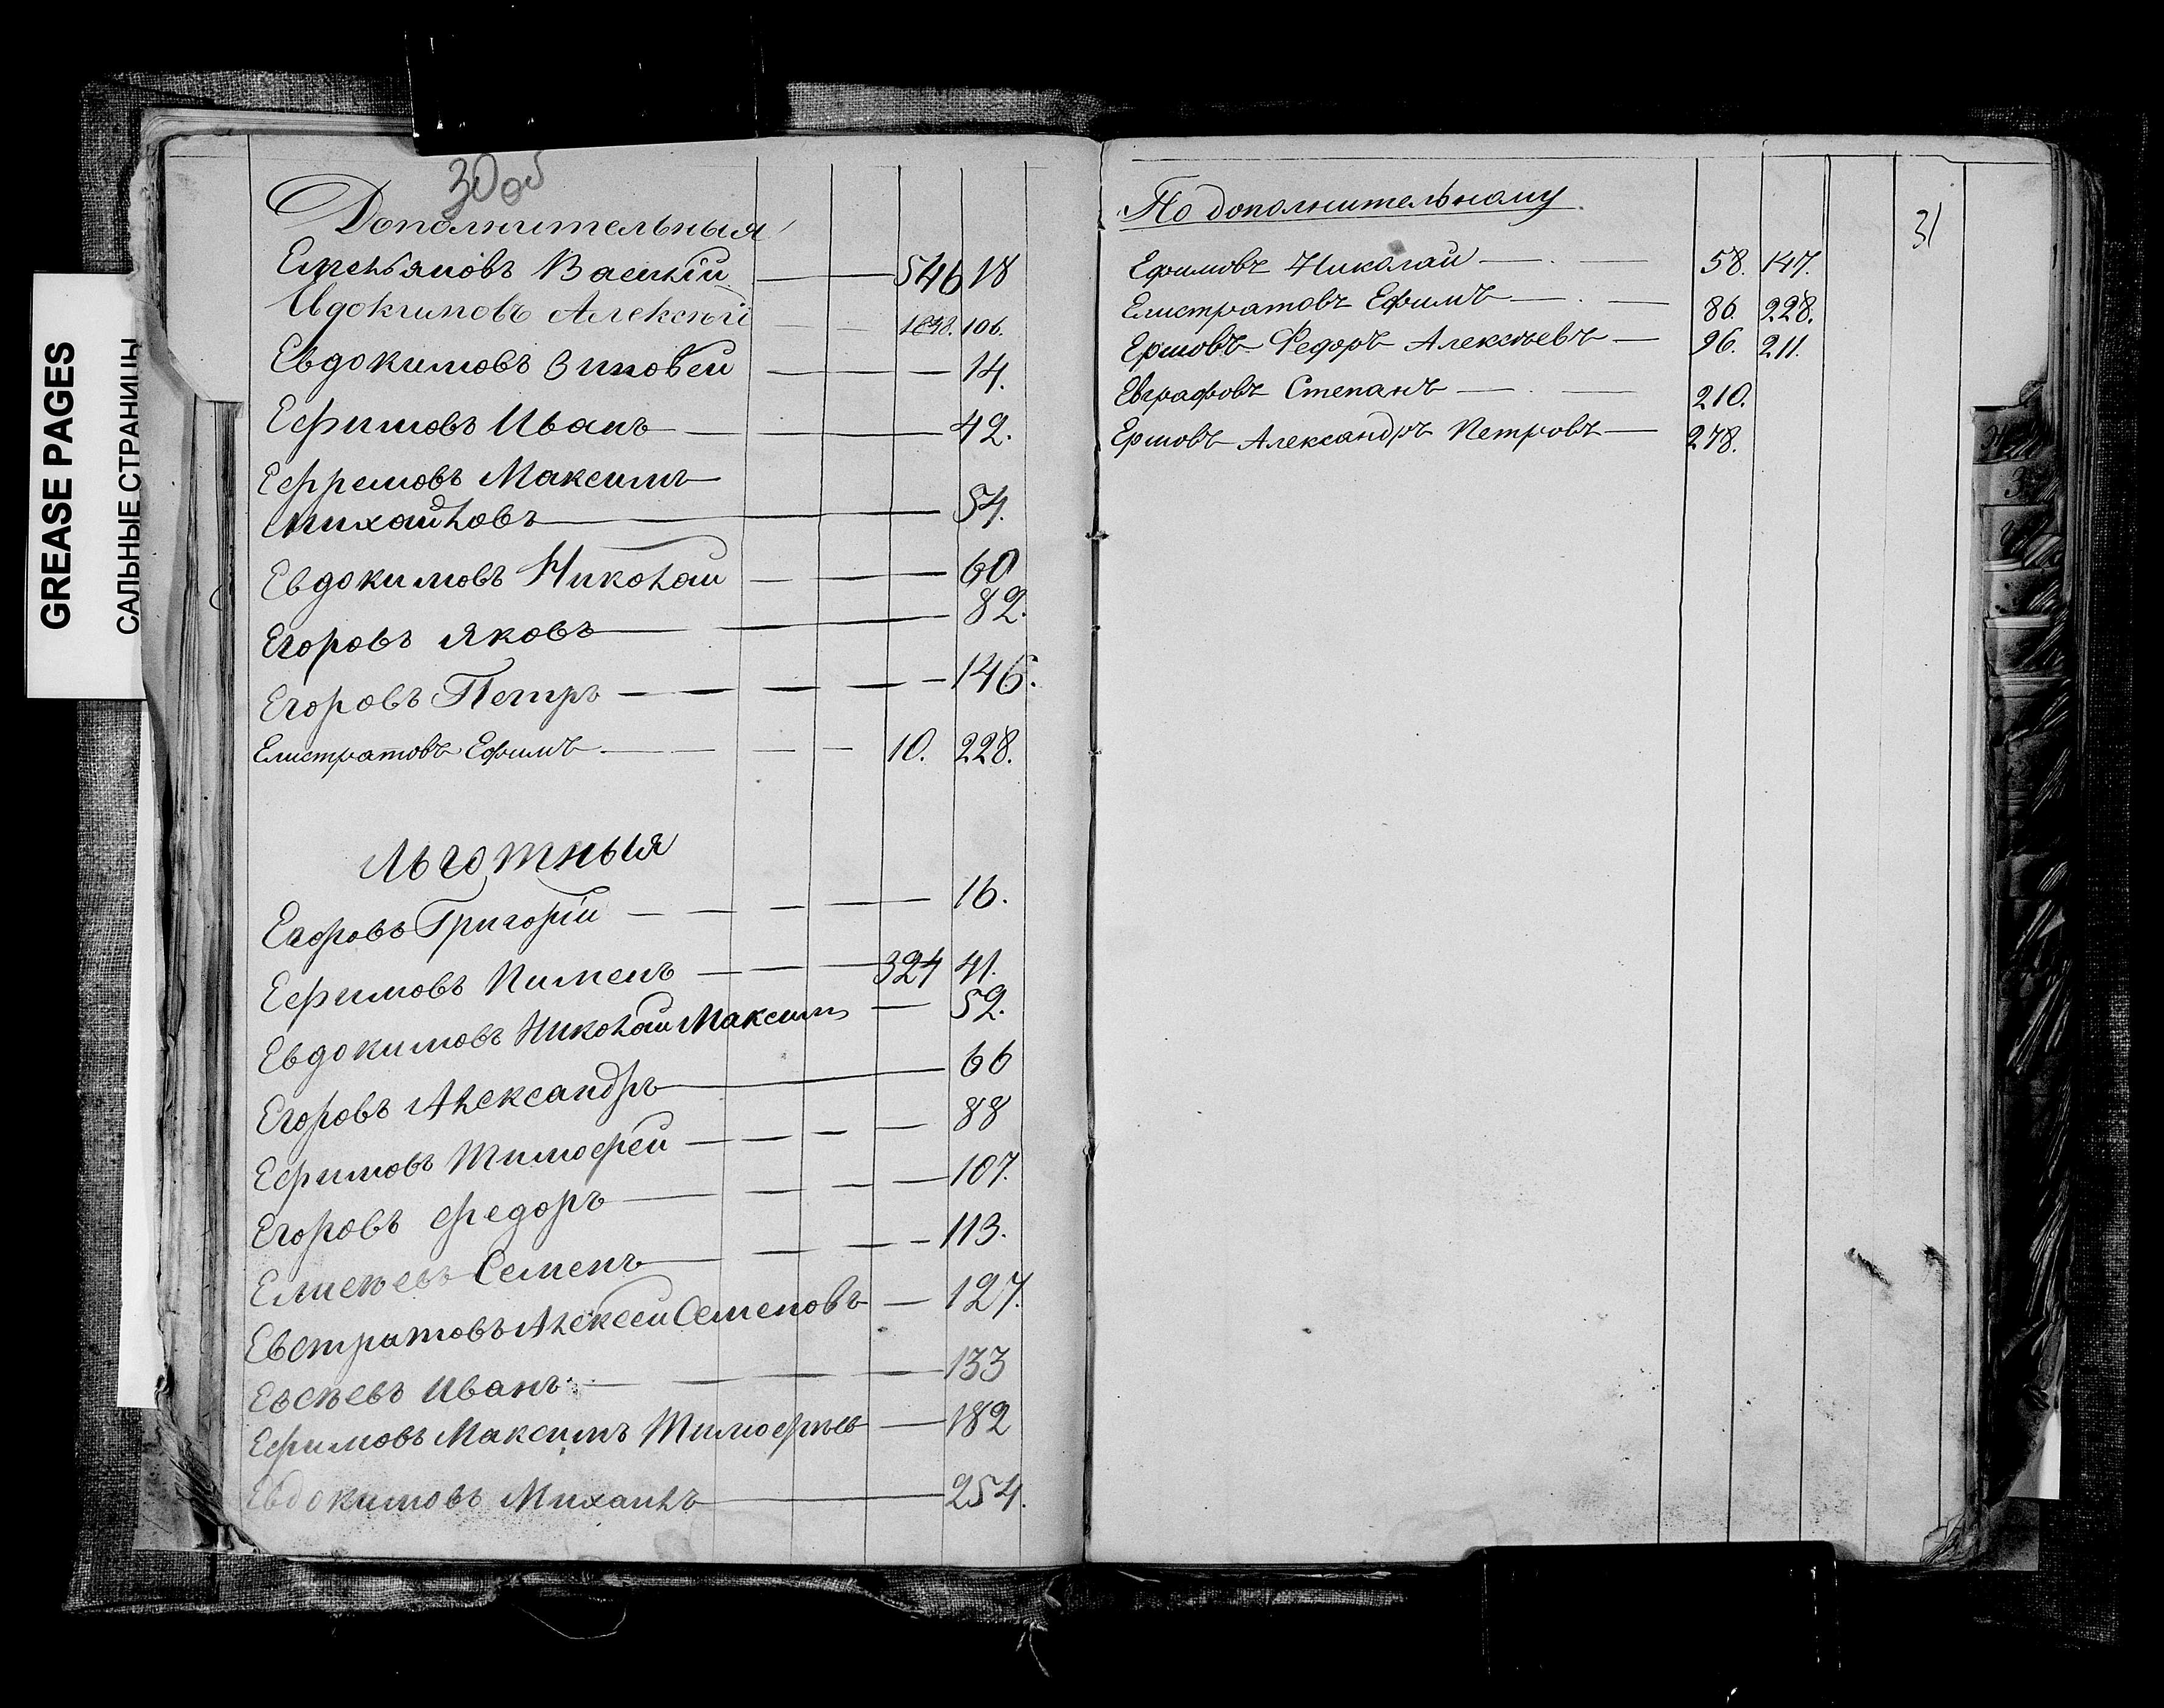 GREASE PAGES
САЛЬНЫЕ СТРАНИЦЫ
30 об
Дополнительныя
Емельяновъ Василій 546 18
Евдокимовъ Алексѣй 1848. 106.
Евдокимовъ Зиновей 14.
Ефимовъ Иванъ 42.
Ефремовъ Максимъ
Михайловъ 54.
Евдокимовъ Николай 60
Егоровъ Яковъ 82.
Егоровъ Петръ 146.
Елистратовъ Ефимъ 10. 228.
Льготныя
Егоровъ Григорій 16.
Ефимовъ Пименъ 324 41.
Евдокимовъ Николай Максим 52.
Егоровъ Александръ 66
Ефимовъ Тимофей 88
Егоровъ Федоръ 107.
Елисѣевъ Семенъ 113.
Евстратовъ Алексей Семеновъ 127.
Евсѣевъ Иванъ 133
Ефимовъ Максимъ Тимофѣев 182
Евдокимовъ Михаилъ 254.
По дополнительному
31
Ефимовъ Николай 58. 147.
Елистратовъ Ефимъ 86. 228.
Ершовъ Федоръ Алексѣевъ 96. 211.
Евграфовъ Степанъ 210.
Ершовъ Александръ Петровъ 278.